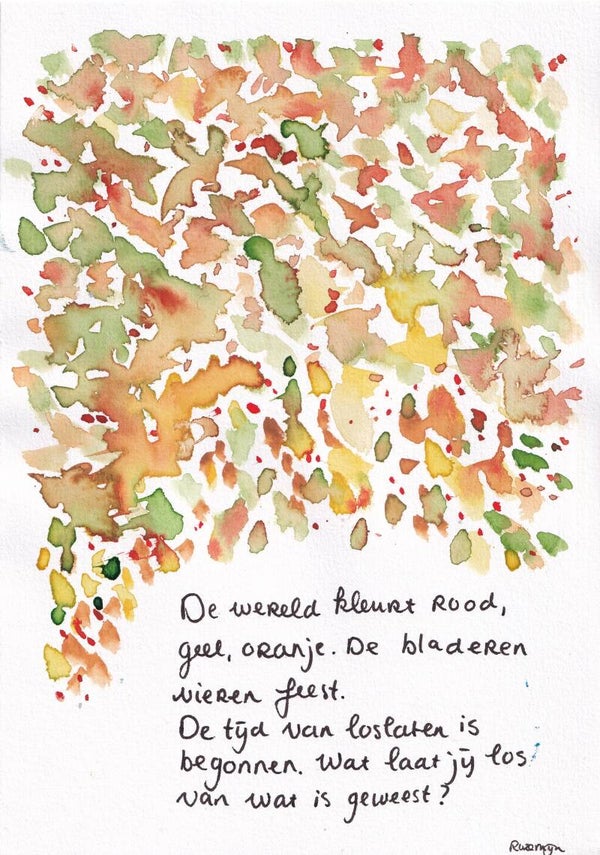 De wereld kleurt rood,
geel, oranje. De bladeren
vieren feest.
De tijd van loslaten is
begonnen. Wat laat jij los
van wat is geweest?